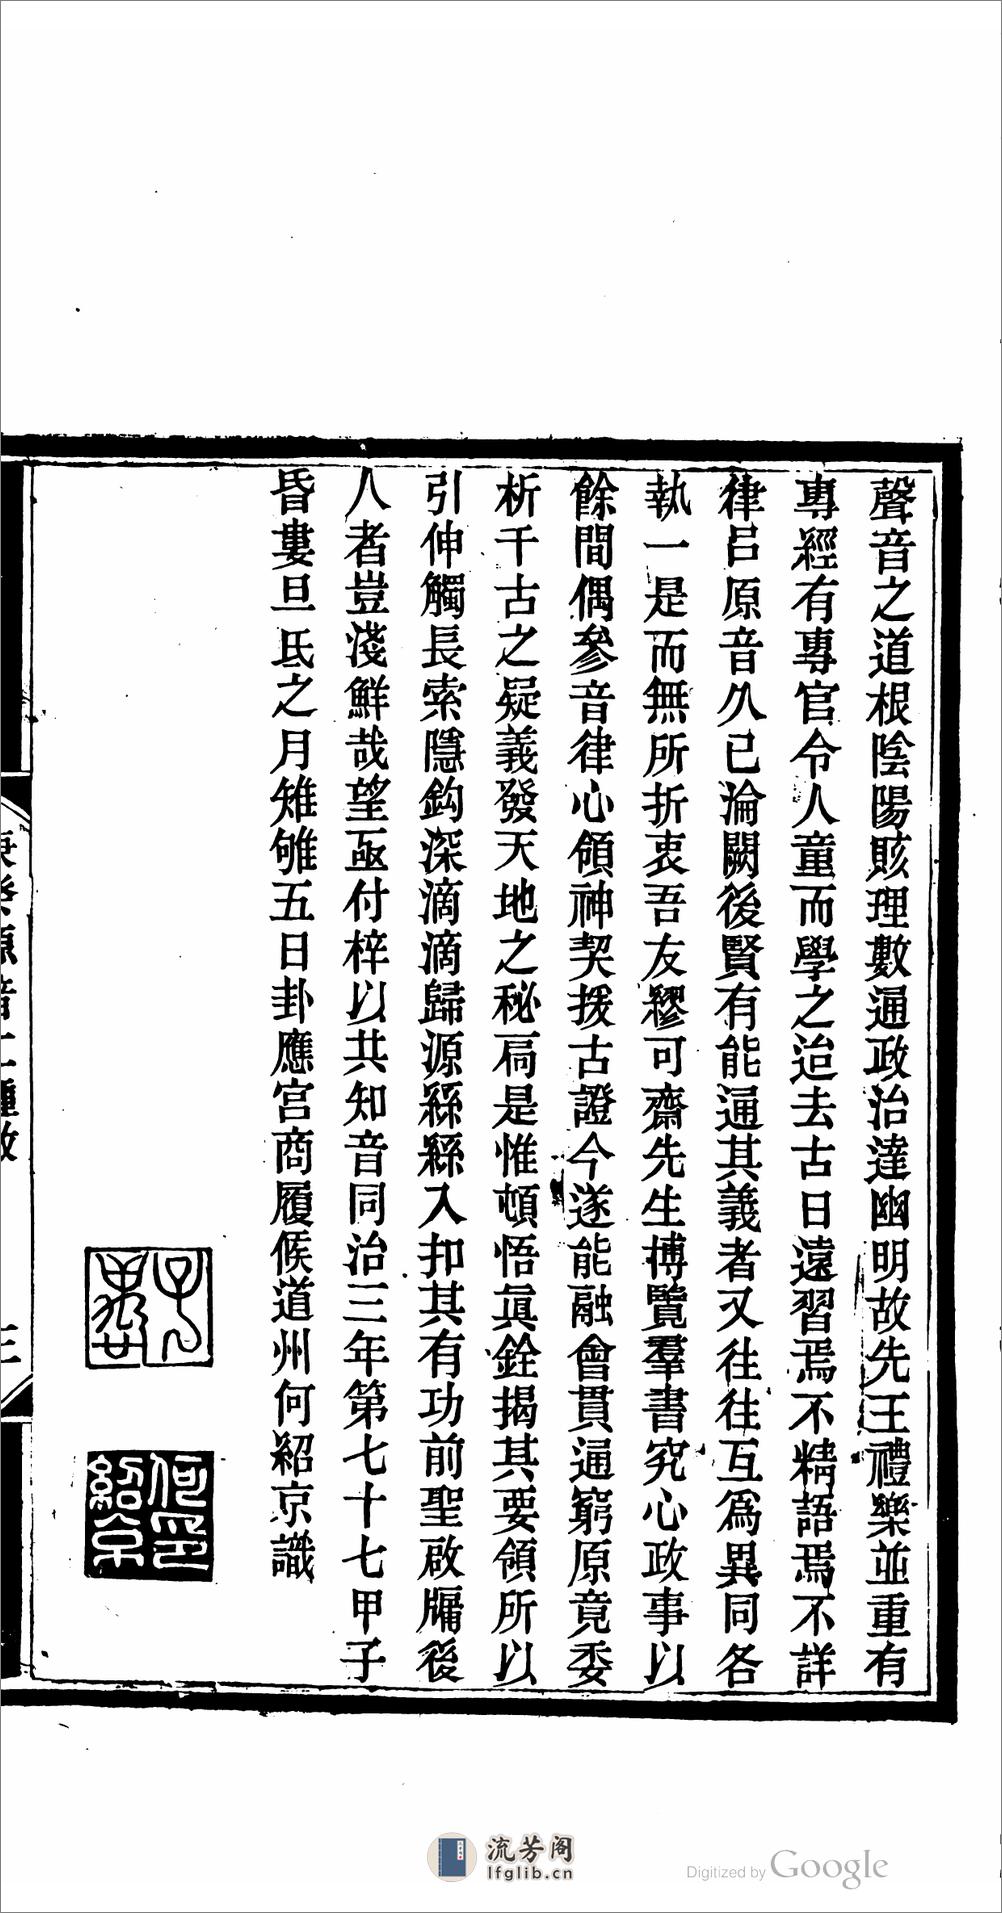 聲音之道根陰陽賅理數通政治達幽明故先王禮樂並重有
專經有專官令人童而學之迨去古日遠習焉不精語焉不詳
律呂原音久已淪闕後賢有能通其義者又往往互爲異同各
執一是而無所折衷吾友繆可齋先生博覽羣書究心政事以
餘間偶參音律心領神契援古證今遂能融會貫通窮原竟委
析千古之疑義發天地之秘扃是惟頓悟眞銓揭其要領所以
引伸觸長索隱鈎深滴滴歸源緜緜入扣其有功前聖啟牖後
人者豈淺鮮哉望亟付梓以共知音同治三年第七十七甲子
昏婁旦氐之月雉雊五日卦應宮商履候道州何紹京識
子
何紹京印
庚癸原音二種敘
三
流芳阁
lfglib.cn
Digitized by Google